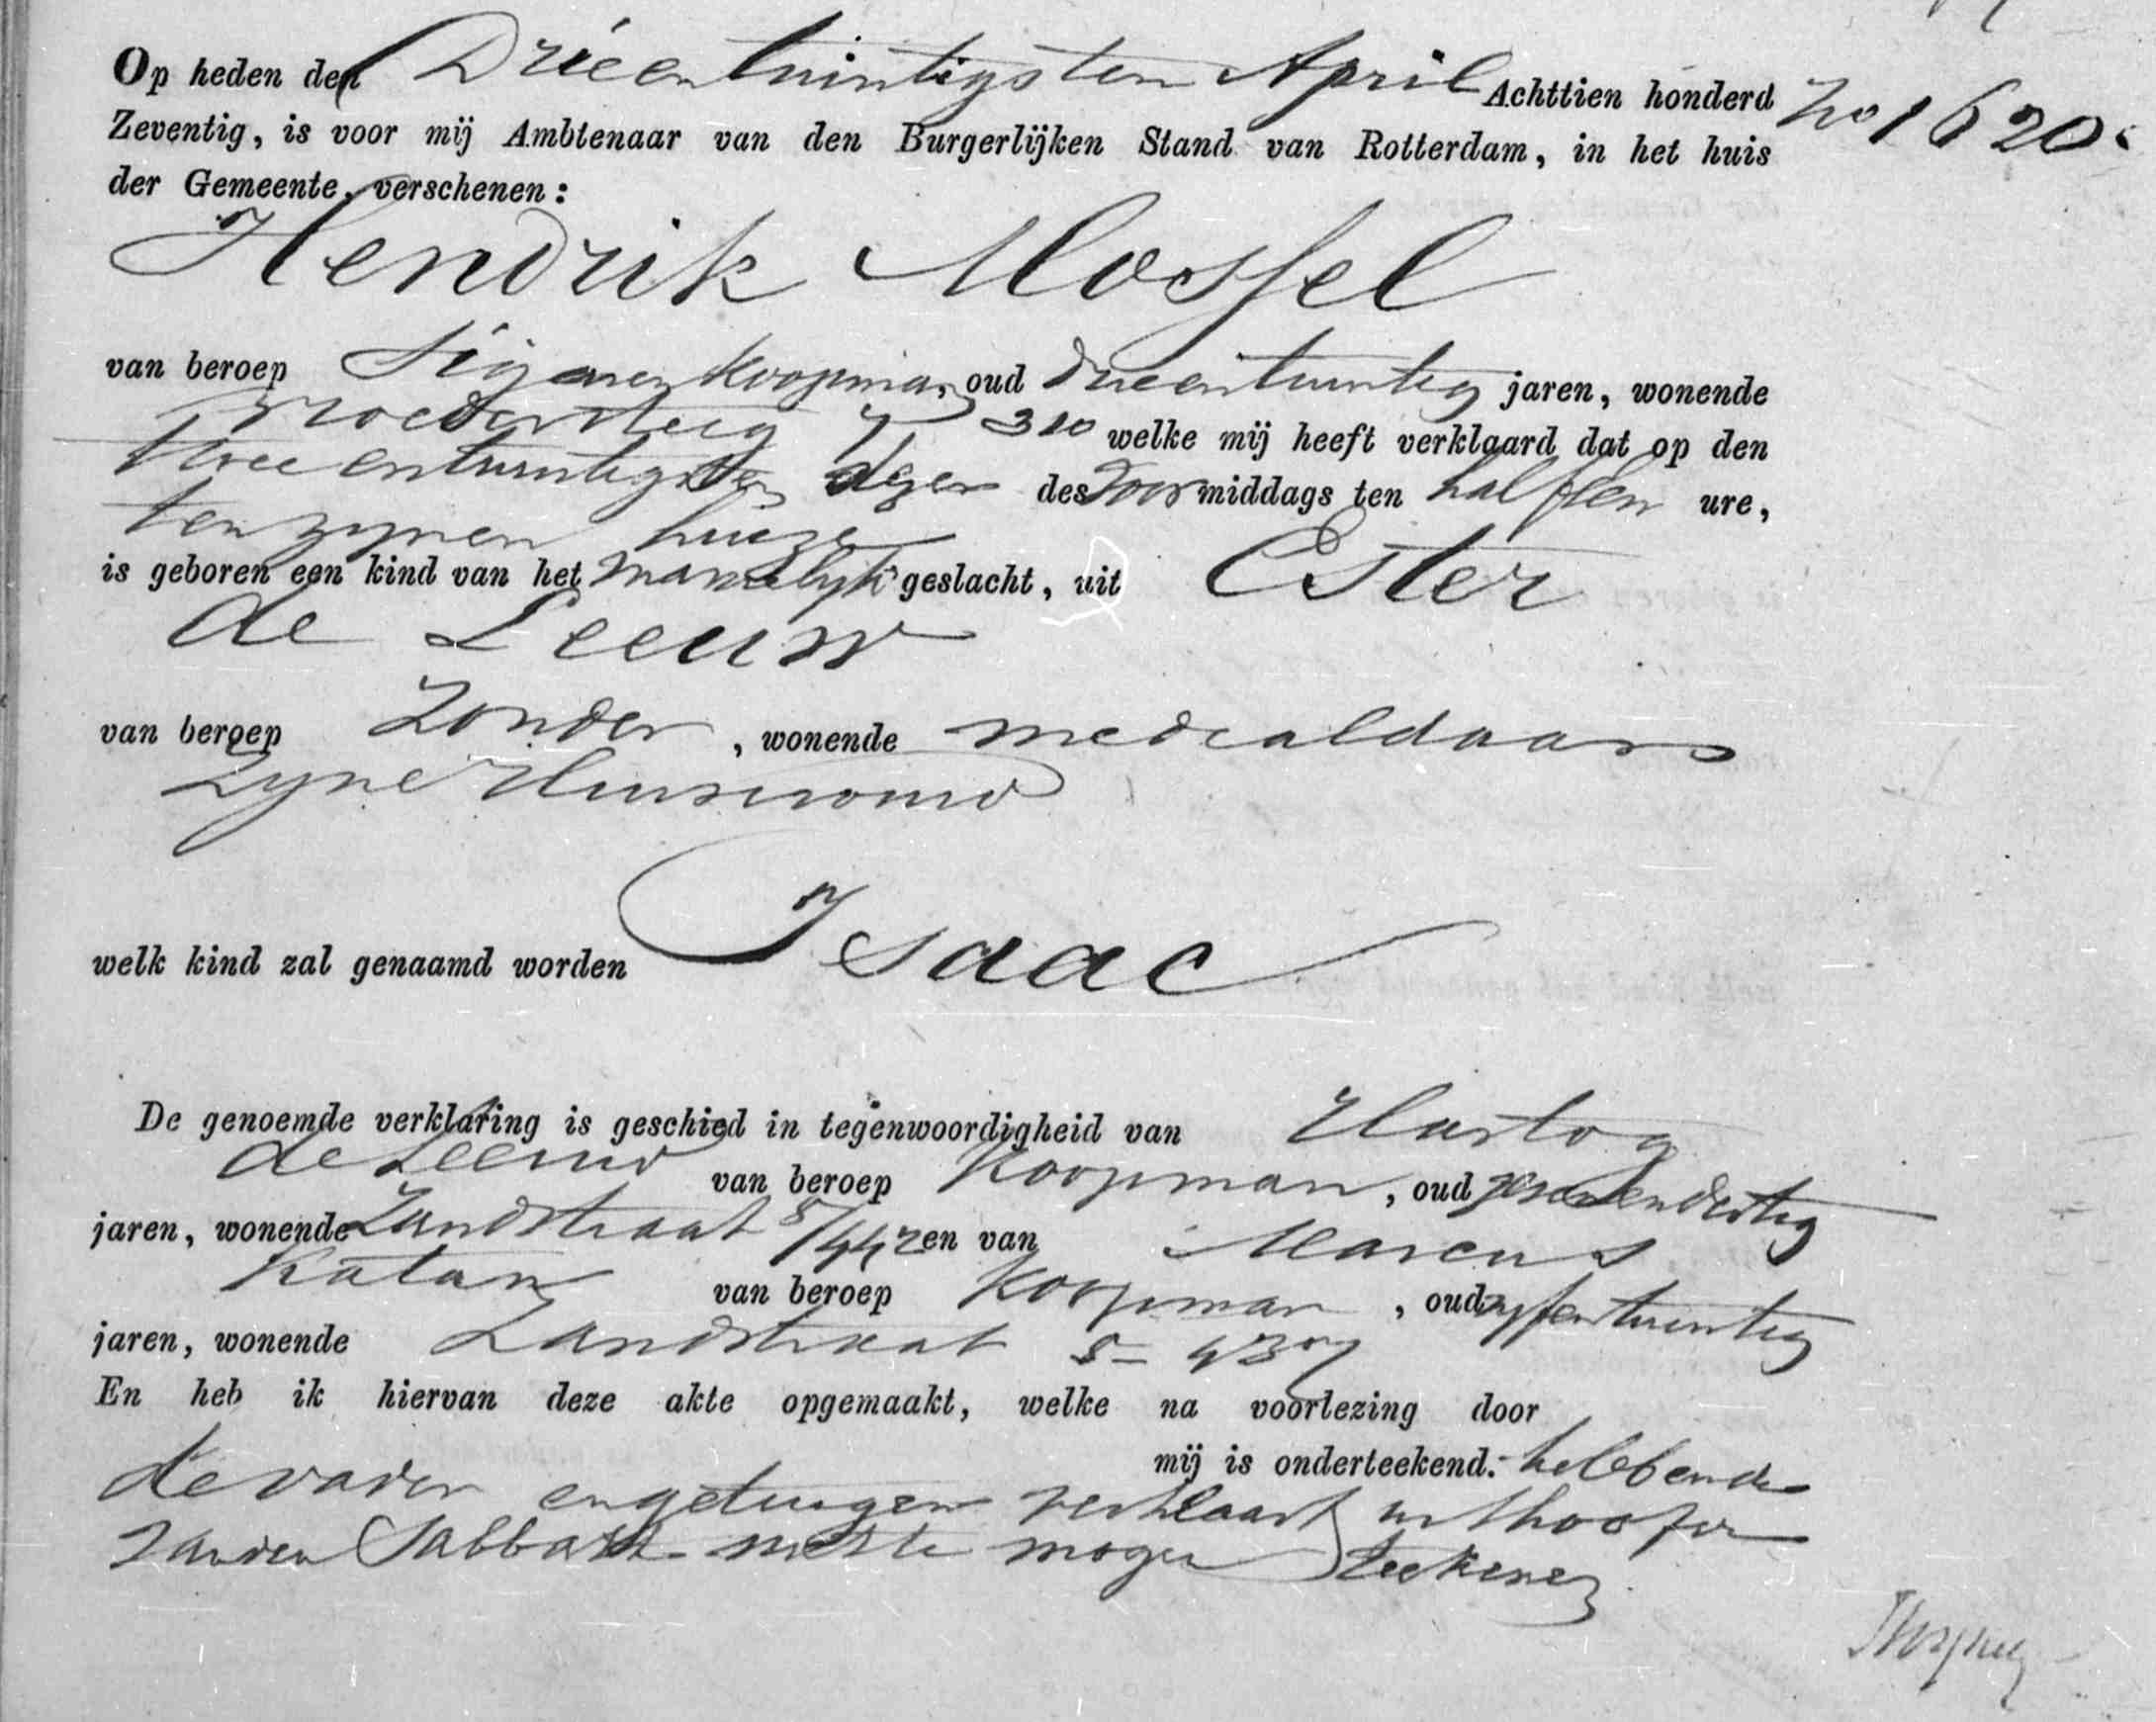 Op heden den Drieentwintigsten April Achttien honderd No 1620.
Zeventig, is voor mij Ambtenaar van den Burgerlijken Stand van Rotterdam, in het huis
der Gemeente, verschenen:
Hendrik Mossel
van beroep Sigarenkoopman, oud drieentwintig jaren, wonende
310 welke mij heeft verklaard dat op den
twee entwintigsten dezer des voormiddags ten half tien ure,
ten zynen huize
is geboren een kind van het mannelyk geslacht, uit Ester
de Leeuw
van beroep Zonder, wonende mede aldaar
Zyne Huisvrouw
welk kind zal genaamd worden Isaac
De genoemde verklaring is geschied in tegenwoordigheid van Hartog
de Leeuw van beroep Koopman, oud zevenendertig
jaren, wonende Zandstraat en van Marcus
Katan van beroep Koopman, oud vyfentwintig
jaren, wonende Zandstraat
En heb ik hiervan deze akte opgemaakt, welke na voorlezing door
mij is onderteekend. hebbende
de vader en getuigen verklaart uit hoofde
van den Sabbath niet te mogen teekenen